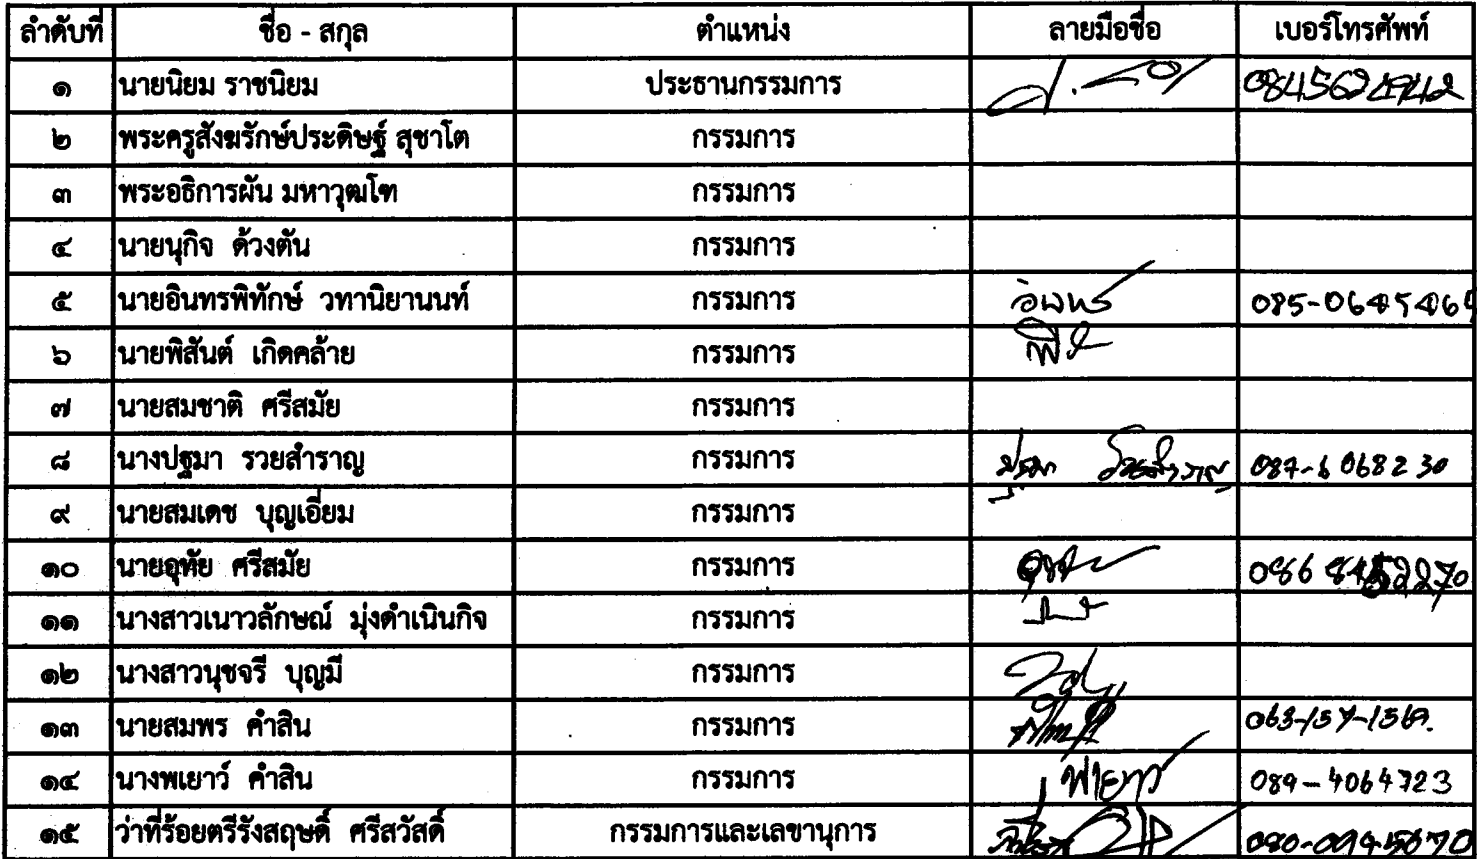 ลำดับที่ ชื่อ - สกุล ตำแหน่ง ลายมือชื่อ เบอร์โทรศัพท์
๑ นายนิยม ราชนิยม ประธานกรรมการ
๒ พระครูสังฆรักษ์ประดิษฐ์ สุชาโต กรรมการ
๓ พระอธิการผัน มหาวุฒโฑ กรรมการ
๔ นายนุกิจ ด้วงตัน กรรมการ
๕ นายอินทรพิทักษ์ วทานิยานนท์ กรรมการ อินทร์
๖ นายพิสันต์ เกิดคล้าย กรรมการ
๗ นายสมชาติ ศรีสมัย กรรมการ
๘ นางปฐมา รวยสำราญ กรรมการ ปฐมา รวยสำราญ 087-6068230
๙ นายสมเดช บุญเอี่ยม กรรมการ
๑๐ นายอุทัย ศรีสมัย กรรมการ
๑๑ นางสาวเนาวลักษณ์ มุ่งดำเนินกิจ กรรมการ
๑๒ นางสาวนุชจรี บุญมี กรรมการ
๑๓ นายสมพร คำสิน กรรมการ
๑๔ นางพเยาว์ คำสิน กรรมการ พเยาว์ 089-4064723
๑๕ ว่าที่ร้อยตรีรังสฤษดิ์ ศรีสวัสดิ์ กรรมการและเลขานุการ